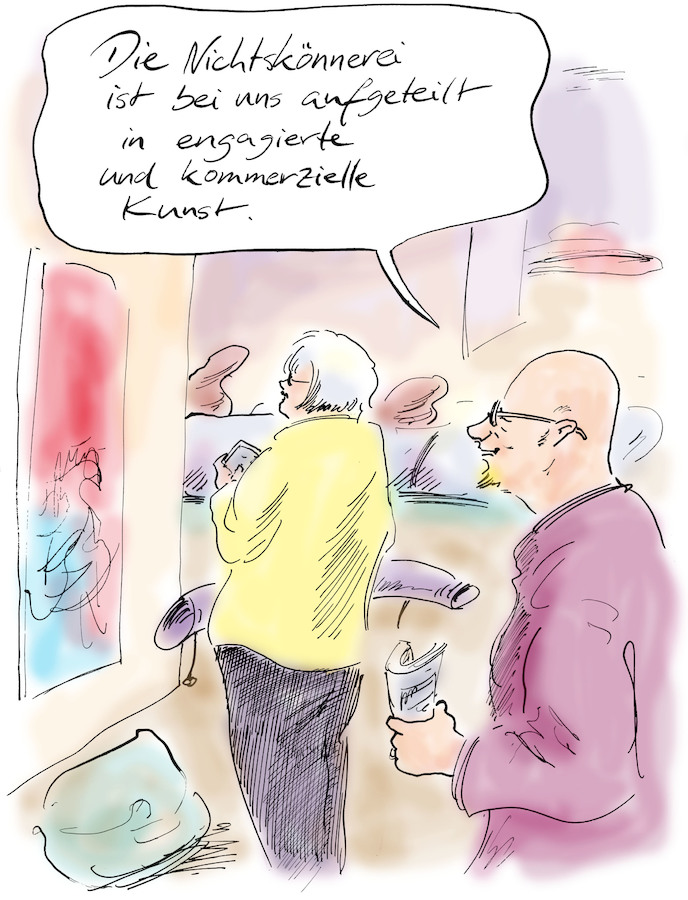 Die Nichtskönnerei
ist bei uns aufgeteilt
in engagierte
und kommerzielle
Kunst.